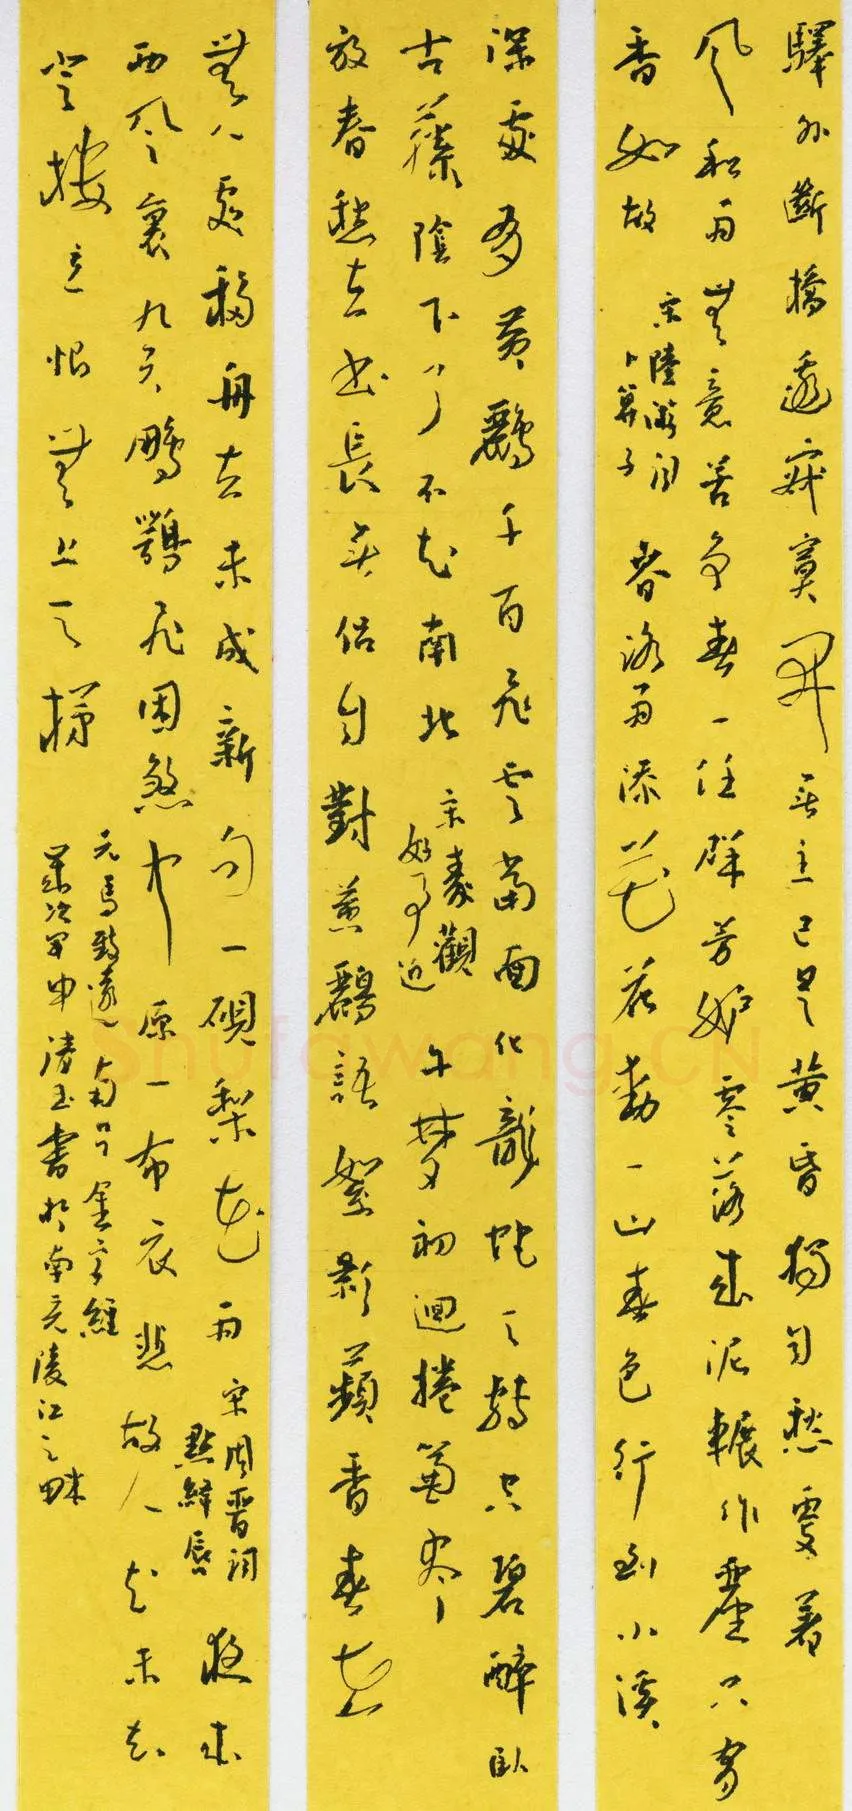 驛外斷橋邊寂寞開無主已是黃昏獨自愁更著
風和雨無意苦爭春一任群芳妒零落成泥輾作塵只有
香如故
宋陸游詞
卜算子
春路雨添花花動一山春色行到小溪
深處有黃鸝千百飛雲當面化龍蛇夭轉空碧醉臥
古藤陰下了不知南北
宋秦觀
好事近
午夢初迴捲簾盡
放春愁去晝長無侶自對黃鸝語絮影蘋香春在
無人處移舟去未成新句一硯梨花雨
宋周晋詞
點絳唇
夜來
西風裏九天鵬鶚飛困煞中原一布衣悲故人知未知
登樓意恨無上天梯
元馬致遠南呂金字經
歲次甲申玉書於南充陵江之畔
Shufawang.CN